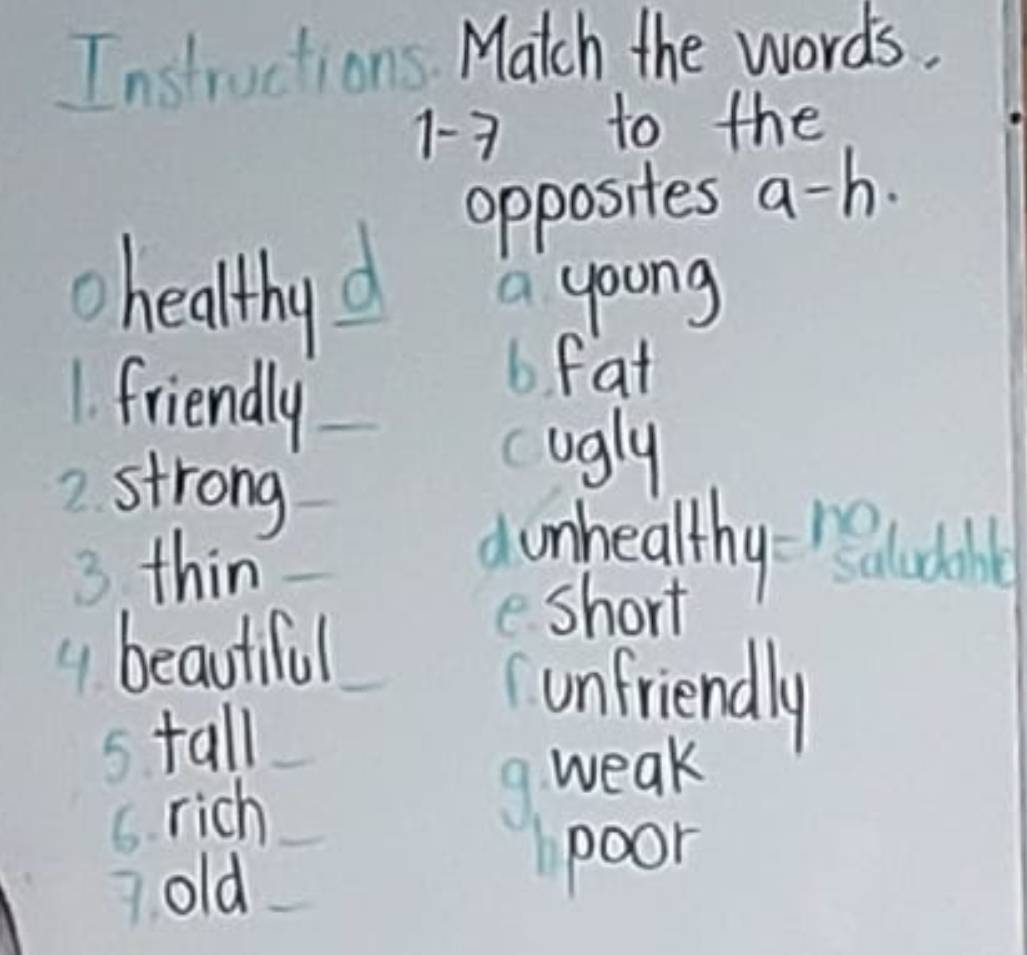 Instructions. Match the words.
1-7 to the
opposites a-h.
0 healthy d
1. friendly _
2. strong _
3. thin _
4. beautiful _
5. tall _
6. rich _
7. old _
a. young
b. fat
c ugly
d unhealthy = no saludable
e. short
f. unfriendly
g. weak
h poor